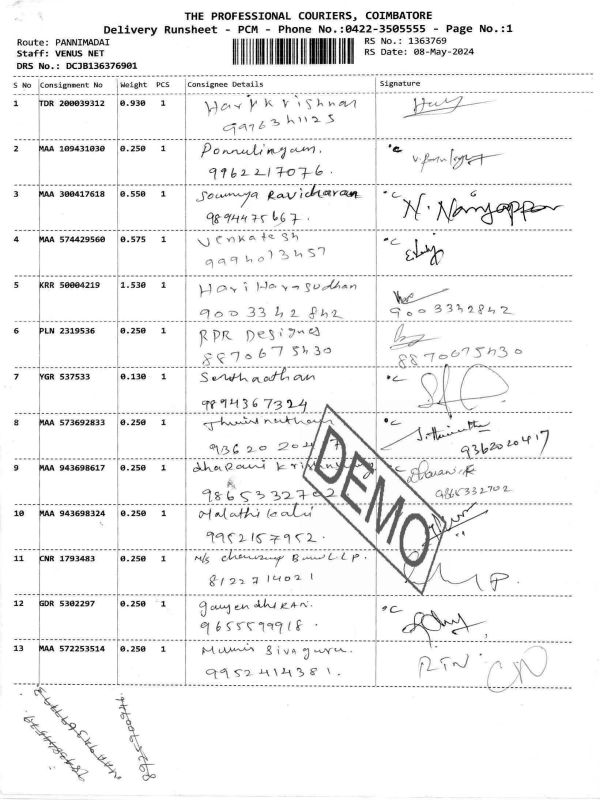 THE PROFESSIONAL COURIERS, COIMBATORE
Delivery Runsheet - PCM - Phone No.:0422-3505555 - Page No.:1
Route: PANNIMADAI
RS No.: 1363769
Staff: VENUS NET
RS Date: 08-May-2024
DRS No.: DCJB136376901
S No Consignment No Weight PCS Consignee Details Signature
1 TDR 200039312 0.930 1 Harikrishnan
2 MAA 109431030 0.250 1 Ponnulingam. °c
9962217076.
3 MAA 300417618 0.550 1 Sowmya Ravicharan °c N. Nanjappan
9894475667.
4 MAA 574429560 0.575 1 Venkatesh °c
9994013457
5 KRR 50004219 1.530 1 Hari Hara sudhan
9003342842 9003342842
6 PLN 2319536 0.250 1 RPR Designes
8870675430 8870675430
7 YGR 537533 0.130 1 °c
9894367324
8 MAA 573692833 0.250 1 °c
9362020417 9362020417
9 MAA 943698617 0.250 1 dharani °c Dharani
9865332702 9865332702
10 MAA 943698324 0.250 1 Malathi
9952157952.
11 CNR 1793483 0.250 1 M/s
8122714021
12 GDR 5302297 0.250 1 °c
9655599918.
13 MAA 572253514 0.250 1 Siva guru. RTN
9952414381.
DEMO